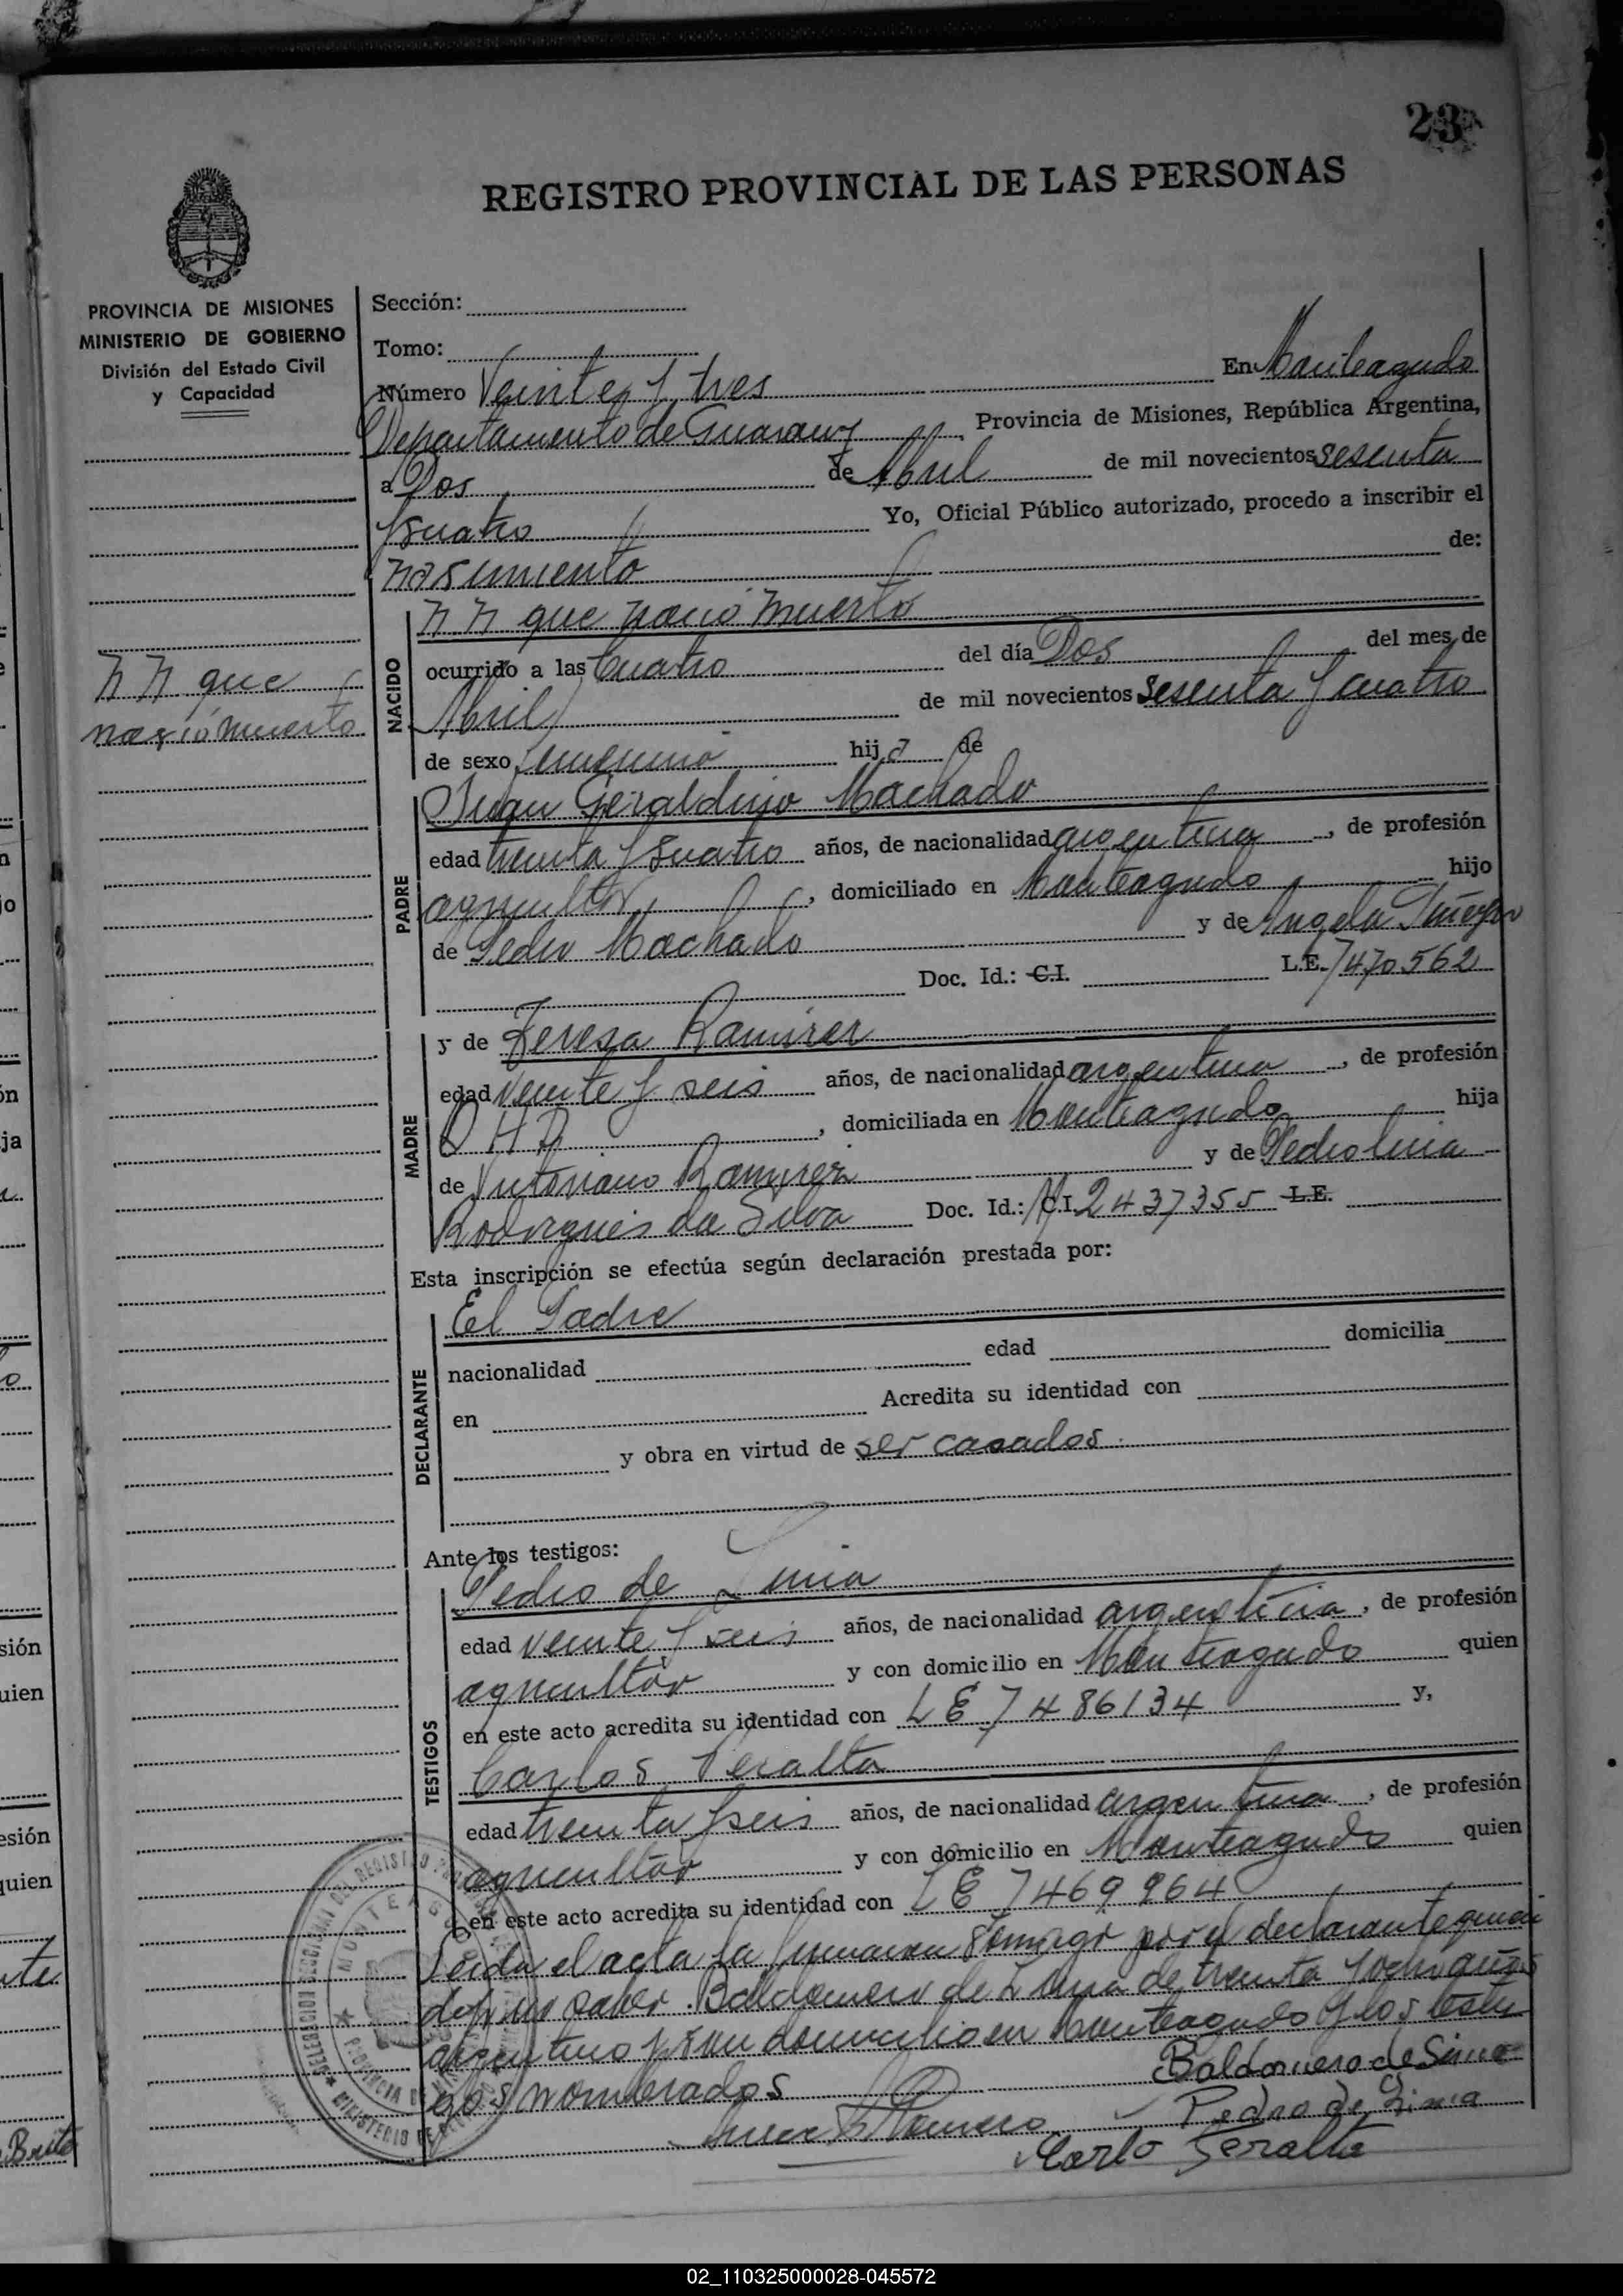 23
REGISTRO PROVINCIAL DE LAS PERSONAS
PROVINCIA DE MISIONES
MINISTERIO DE GOBIERNO
División del Estado Civil
y Capacidad
Sección:
Tomo:
Número Veinte y tres En Monteagudo
Departamento de Guarany, Provincia de Misiones, República Argentina,
a Dos de Abril de mil novecientos sesenta
y cuatro Yo, Oficial Público autorizado, procedo a inscribir el
nasimiento de:
N N que
nasio muerto
NACIDO
N N que nacio muerto
ocurrido a las Cuatro del día Dos del mes de
Abril de mil novecientos sesenta y cuatro
de sexo femenino hija de
PADRE
Juan Geraldino Machado
edad treinta y cuatro años, de nacionalidad argentina, de profesión
agricultor, domiciliado en Monteagudo hijo
de Pedro Machado y de Angela
Doc. Id.: C.I. L.E. 7470562
MADRE
y de Teresa Ramirez
edad veinte y seis años, de nacionalidad argentina, de profesión
Q H D, domiciliada en Monteagudo hija
de Antoniano Ramirez y de Pedrolina
Rodrigues da Silva Doc. Id.: C.I. 2437355 L.E.
Esta inscripción se efectúa según declaración prestada por:
DECLARANTE
El Padre
nacionalidad edad domicilia
en Acredita su identidad con
y obra en virtud de ser casados.
Ante los testigos:
TESTIGOS
Pedro de Lima
edad veinte y seis años, de nacionalidad argentina, de profesión
agricultor y con domicilio en Monteagudo quien
en este acto acredita su identidad con L E 7486134 y,
Carlos Peralta
edad treinta y seis años, de nacionalidad argentina, de profesión
agricultor y con domicilio en Monteagudo quien
en este acto acredita su identidad con L E 7469964
Leida el acta la firmaron conmigo por el declarante quien
dijo no saber. Baldomero de Lima de treinta y ocho años
argentino y con domicilio en Monteagudo y los testi
gos nombrados
Baldomero de Lima
Pedro de Lima
Romero
Carlo Peralta
MONTEAGUDO
PROVINCIA DE MISIONES
02_110325000028-045572